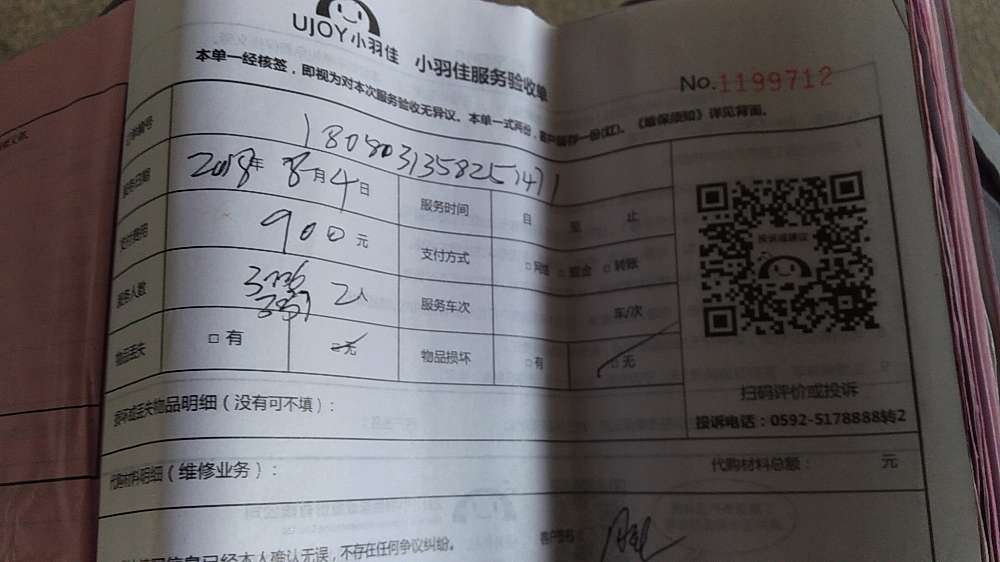 UJOY小羽佳 小羽佳服务验收单
No.1199712
本单一经核签，即视为对本次服务验收无异议。本单一式两份，客户留存一份(红)。《维保须知》详见背面。
订单编号 18080313582517471
服务日期 2018年 8月4日 服务时间 自 至 止
支付费用 900元 支付方式 □网络 □现金 □转账
服务人数 服务车次 车/次
物品丢失 □有 □无 物品损坏 □有 □无
投诉或建议
扫码评价或投诉
投诉电话：0592-5178888转2
损坏或丢失物品明细（没有可不填）：
代购材料明细（维修业务）： 代购材料总额： 元
信息已经本人确认无误，不存在任何争议纠纷。
客户签名：